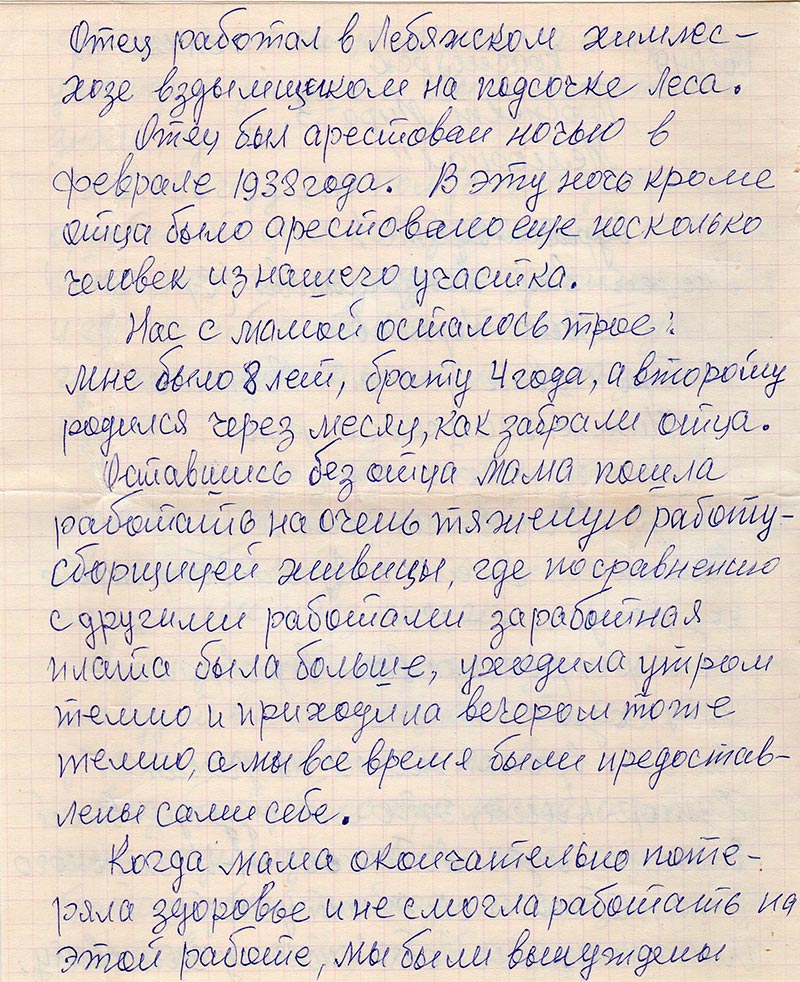 Отец работал в Лебяжском химлес-
хозе вздымщиком на подсочке леса.
Отец был арестован ночью в
феврале 1938 года. В эту ночь кроме
отца было арестовано еще несколько
человек из нашего участка.
Нас с мамой осталось трое:
мне было 8 лет, брату 4 года, а второму
родился через месяц, как забрали отца.
Оставшись без отца мама пошла
работать на очень тяжелую работу-
сборщицей живицы, где по сравнению
с другими работами заработная
плата была больше, уходила утром
темно и приходила вечером тоже
темно, а мы все время были предостав-
лены сами себе.
Когда мама окончательно поте-
ряла здоровье и не смогла работать на
этой работе, мы были вынуждены